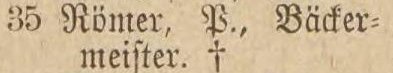 35 Römer, P., Bäcker=
meiſter. †